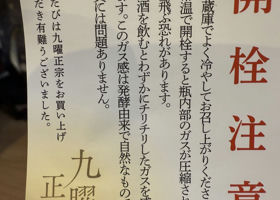 開栓注意
蔵庫でよく冷やしてお召し上がりくださ
温で開栓すると瓶内部のガスが圧縮され
飛ぶ恐れがあります。
酒を飲むとわずかにチリチリしたガスを
す。このガス感は発酵由来で自然なもの
には問題ありません。
たびは九曜正宗をお買い上げ
だき有難うございました。
九曜
正